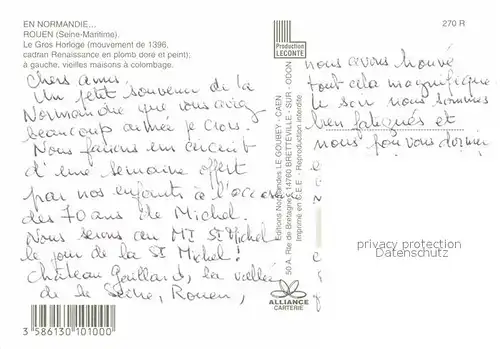 EN NORMANDIE...
270 R
ROUEN (Seine-Maritime).
Le Gros Horloge (mouvement de 1396,
cadran Renaissance en plomb doré et peint);
à gauche, vieilles maisons à colombage.
Chers amis.
Un petit souvenir de la
Normandie que vous aviez
beaucoup aimée je crois.
Nous faisons un circuit
d'une semaine offert
par nos enfants à l'occasion
des 70 ans de Michel.
Nous serons au Mt St Michel
le jour de la St Michel!
Château Gaillard, la vallée
de la Seine, Rouen,
3 586130 101000
Production
LECONTE
Editions Normandes LE GOUBEY - CAEN
50 A, Rte de Bretagne - 14760 BRETTEVILLE - SUR - ODON
Imprimé en C.E.E. - Reproduction interdite
ALLIANCE
CARTERIE
nous avons trouvé
tout cela magnifique
le soir nous sommes
bien fatigués et
nous pouvons dormir
privacy protection
Datenschutz